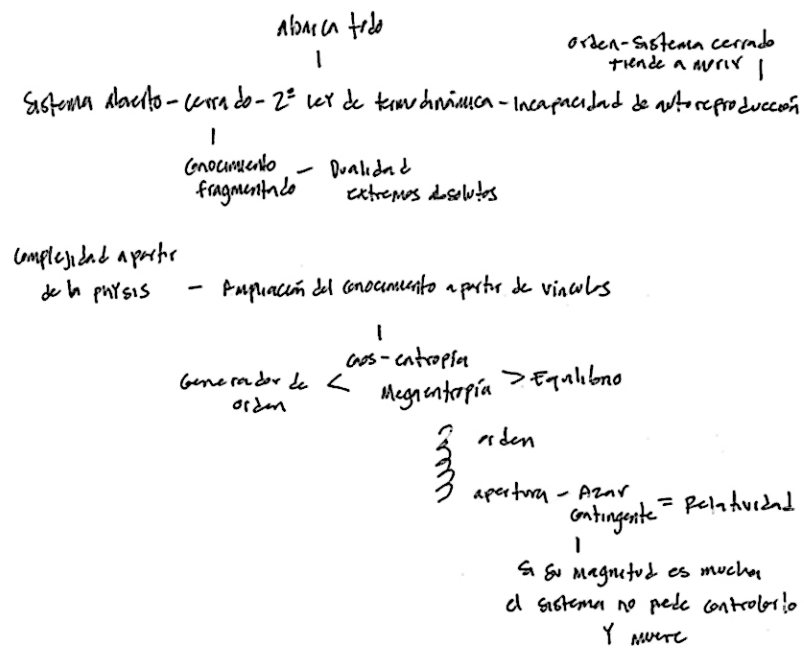 Abarca todo
orden-sistema cerrado
tiende a morir
Sistema abierto - cerrado - 2ª Ley de termodinámica - Incapacidad de autoreproducción
Conocimiento
fragmentado - Dualidad
extremos absolutos
Complejidad a partir
de la physis - Ampliación del conocimiento a partir de vínculos
Generador de
orden < Caos-entropía
Megaentropía > Equilibrio
orden
apertura - Azar
contingente = Relatividad
Si su magnitud es mucha
el sistema no puede controlarlo
Y muere